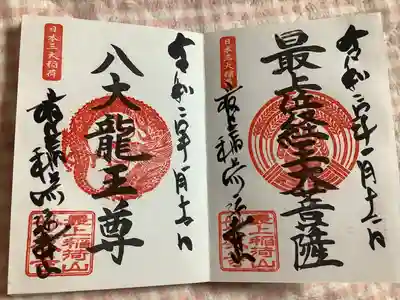 令和 年一月十 日
最上位経王大菩薩
日本三大稲荷
最上稲荷
最上稲荷山
令和 年一月十 日
八大龍王尊
日本三大稲荷
最上稲荷
最上稲荷山